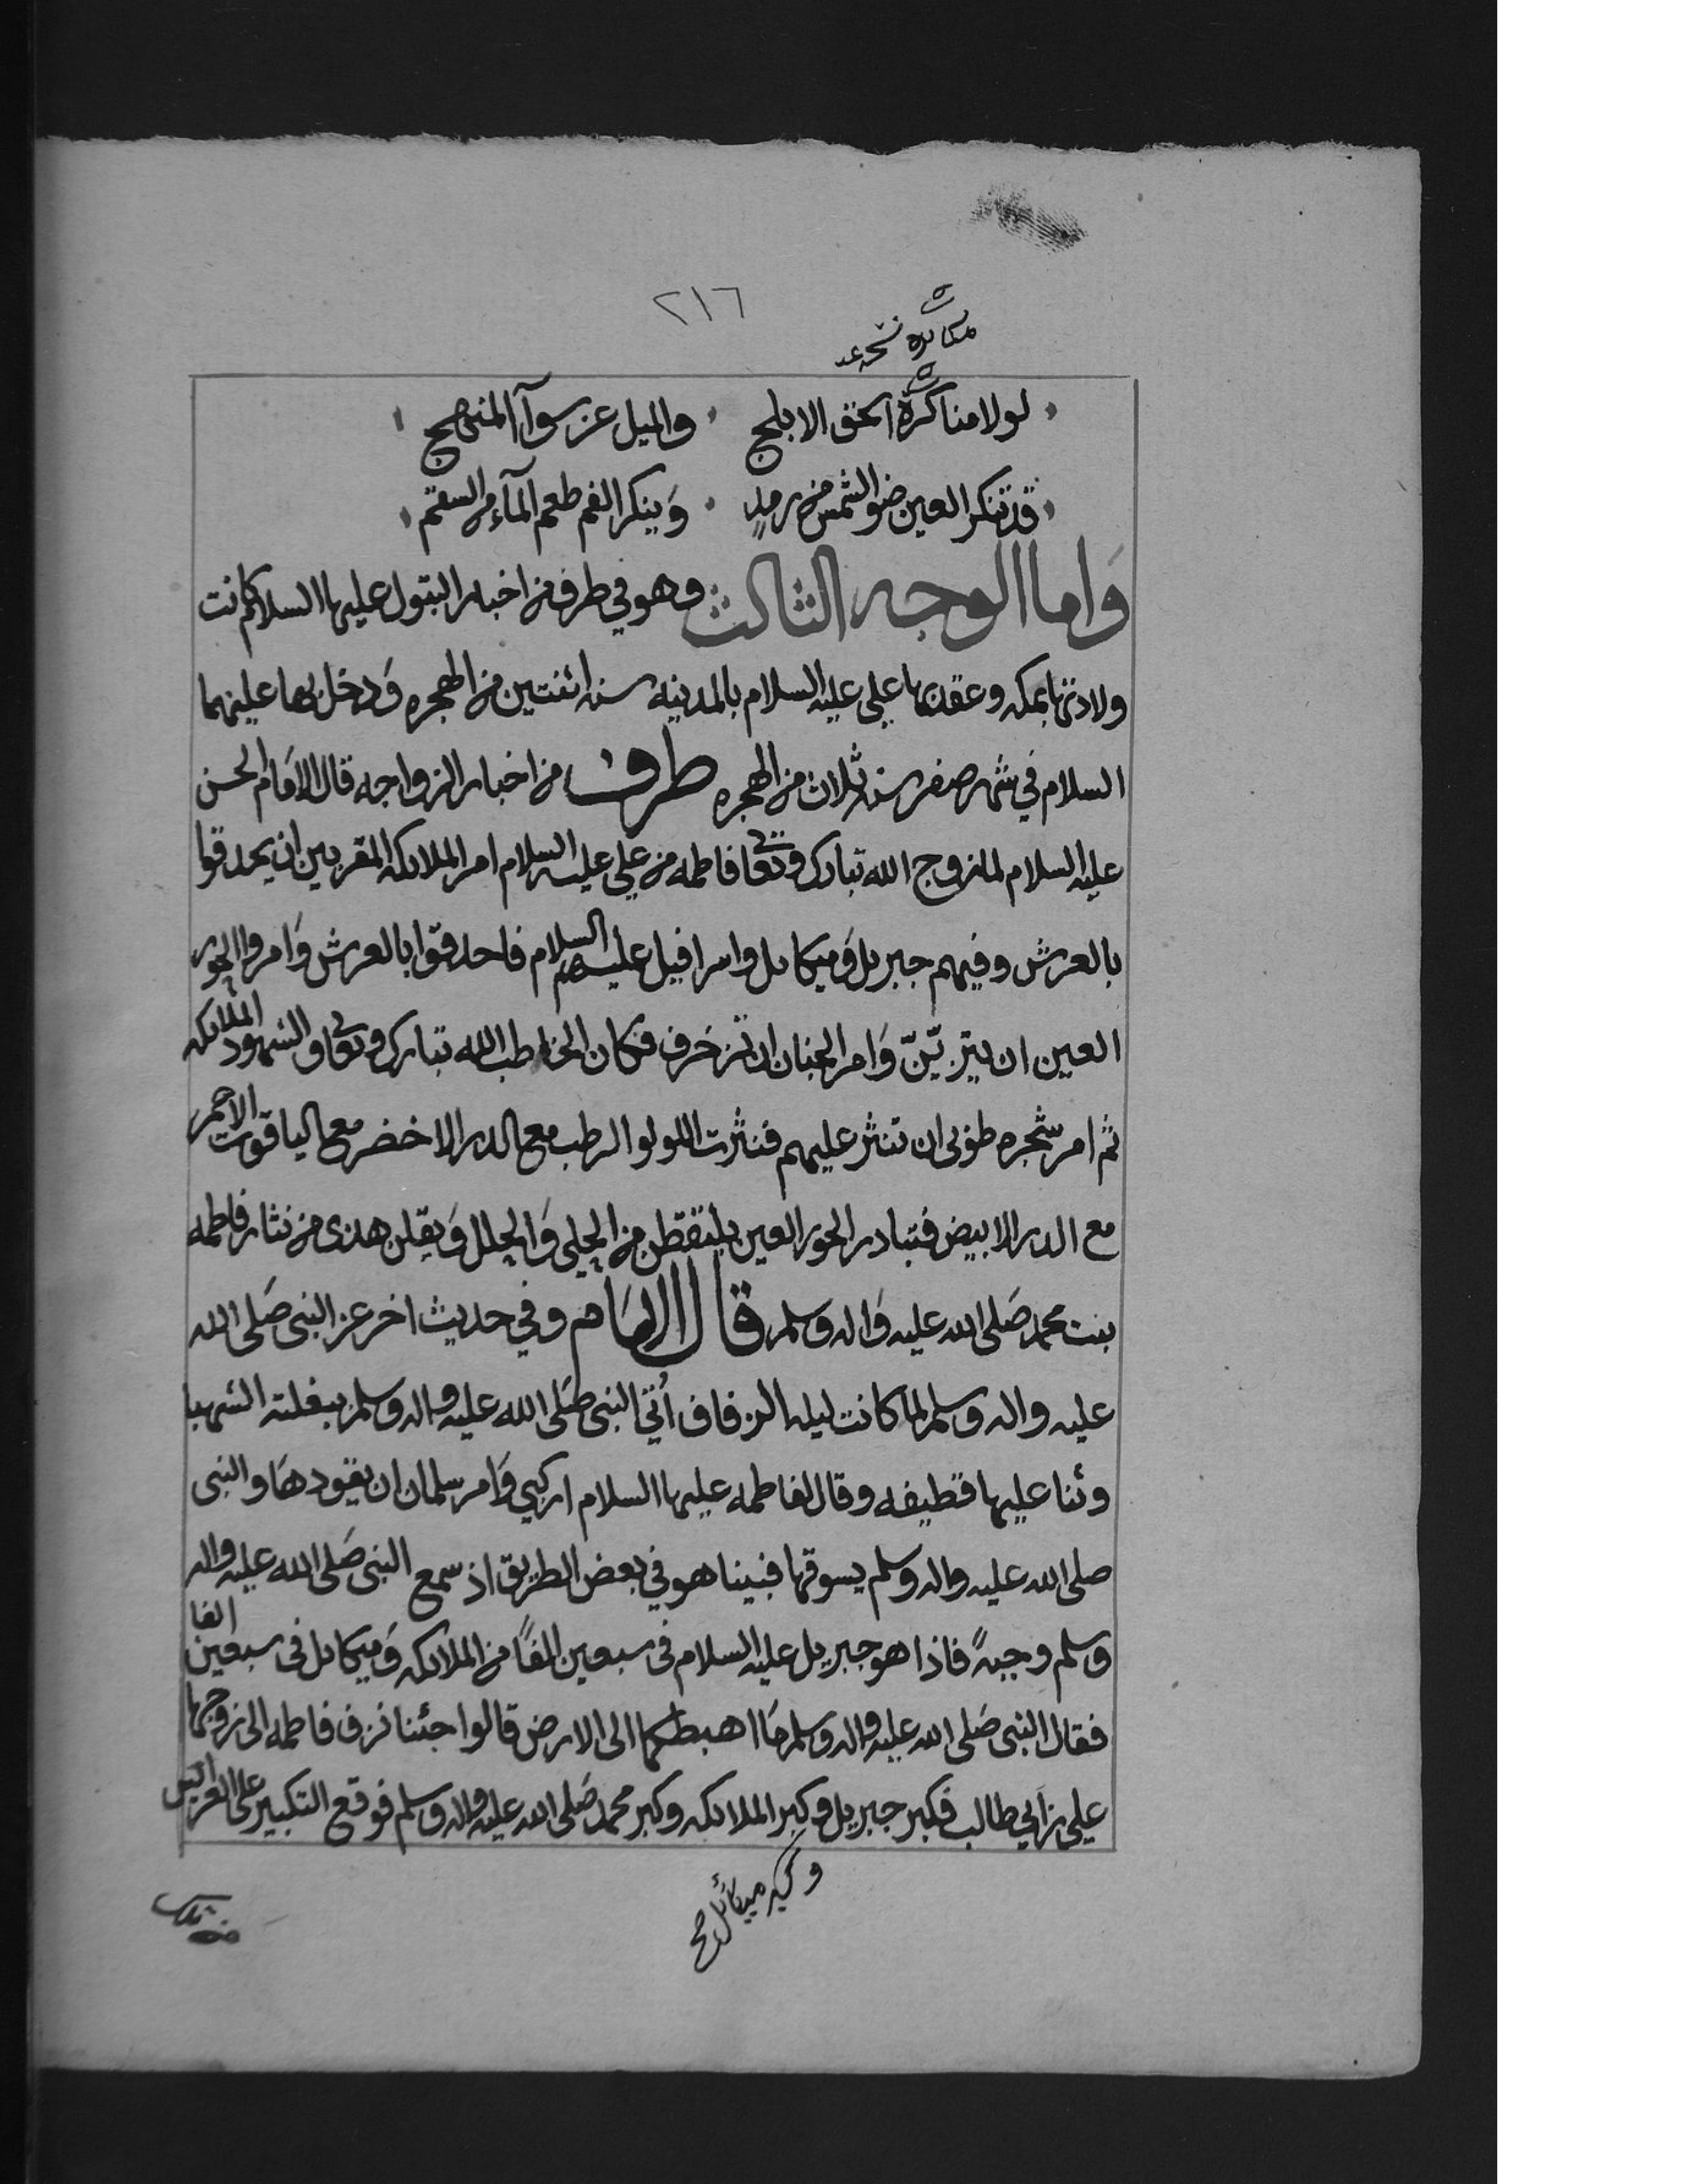 ٢١٦
مكابرة نسخه
لولا مناكرة الحق الابلج والميل عن سوآ المنهج
قد تنكر العين ضو الشمس من رمدٍ وَينكر الفم طعم المآء من السقم
وَاما الوجه الثالث وهو في طرف من اخبار البتول عليها السلام كانت
ولادتها بمكه وعقد بها علي عليه السلام بالمدينه سنه اثنتين من الهجره وَدخل بها عليهما
السلام في شهر صفر سنه ثلاث من الهجره طرف من اخبار الزواجه قال الامَام الحسن
عليه السلام لما زوج الله تبارك وتعا فاطمه من علي عليه السلام امر الملائكه المقربين ان يحدقوا
بالعرش وفيهم جبريل وَميكائل واسرافيل عليهم السلام فاحدقوا بالعرش وَامروا الحور
العين ان يتزيّنّ وَامر الجنان ان تزخَرف فكان الخاطب الله تبارك وتعا والشهود الملائكه
ثم امر شجره طوبى ان تنثر عليهم فنثرت اللولو الرطب مع الدر الاخضر مع الياقوت الاحمر
مع الدر الابيض فتبادر الحور العين يلتقطن من الحلي وَالحلل وَيقلن هذى من نثار فاطمه
بنت محمد صَلى الله عليه وَاله وسلم قال الامَام وفي حديث اخر عن النبى صَلى الله
عليه واله وسلم لما كانت ليله الزفاف أتي النبى صَلى الله عليه واله وسلم ببغلته الشهبا
وثنا عليها قطيفه وقال لفاطمه عليها السلام اركبي وَامر سلمان ان يقودهَا والنبى
صلى الله عليه واله وسلم يسوقها فبينا هو في بعض الطريق اذ سمع النبى صَلى الله عليه واله
وسلم وجبهً فاذا هو جبريل عليه السلام فى سبعين الفًا من الملائكه وَميكائل فى سبعين الفا
فقال النبى صَلى الله عليه واله وسلم مَا اهبطكما الى الارض قالوا جئنا نزف فاطمه الى زوجها
علي بن ابي طالب فكبر جبريل وكبر الملائكه وكبر محمد صَلى الله عليه واله وسلم فوقع التكبير على العرايس
وكبر ميكائل صح